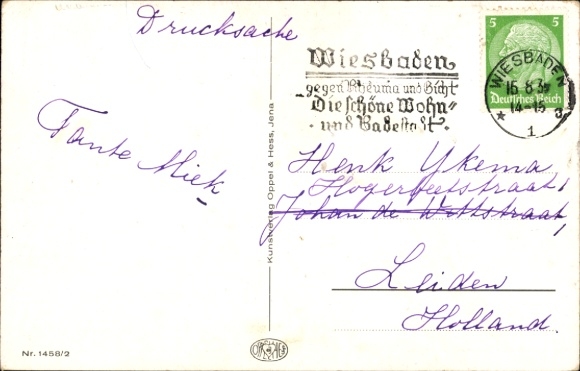 Drucksache
Tante Miek
Wiesbaden
gegen Rheuma und Gicht
"Die schöne Wohn-
und Badestadt"
5 5
Deutsches Reich
WIESBADEN
14-15
* 1 a
Henk Ykema
Hogerbeetstraat 1
Johan de Wittstraat,
Leiden
Holland.
Kunstverlag Oppel & Hess, Jena
Nr. 1458/2